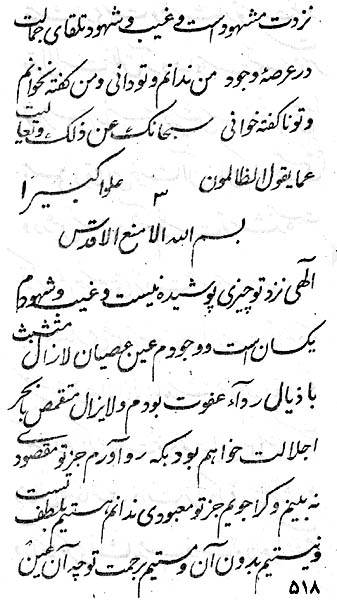 نزدت مشهود است و غیب و شهود تلقای جمالت
در عرصهٔ وجود من ندانم و تو دانی و من گفته نخوانم
و تو ناگفته خوانی سبحانک عن ذلک و تعالیت
عما یقول الظالمون علوا کبیرا
۳
بسم الله الامنع الاقدس
آلهی نزد تو چیزی پوشیده نیست و غیب و شهودم
یکسان است و وجودم عین عصیان لازال متشبث
باذیال ردآء عفوت بودم و لایزال متقمص باحجر
اجلالت خواهم بود بکه رو آورم جز تو مقصودی
نه بینم و کرا جویم جز تو معبودی ندانم هستیم بلطف تست
و نیستیم بدون آن و مستیم رحمت توجه آن عین
۵۱۸